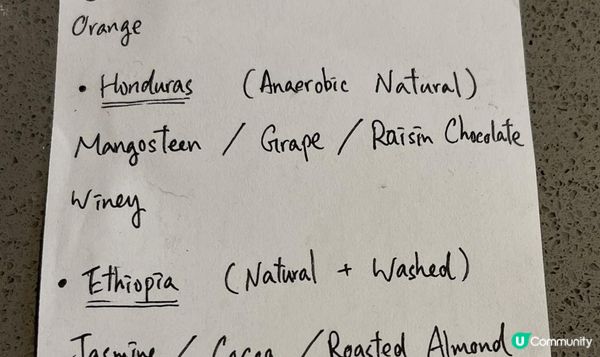 Orange
• Honduras (Anaerobic Natural)
Mangosteen / Grape / Raisin Chocolate
Winey
• Ethiopia (Natural + Washed)
Jasmine / Cacao / Roasted Almond
U Community